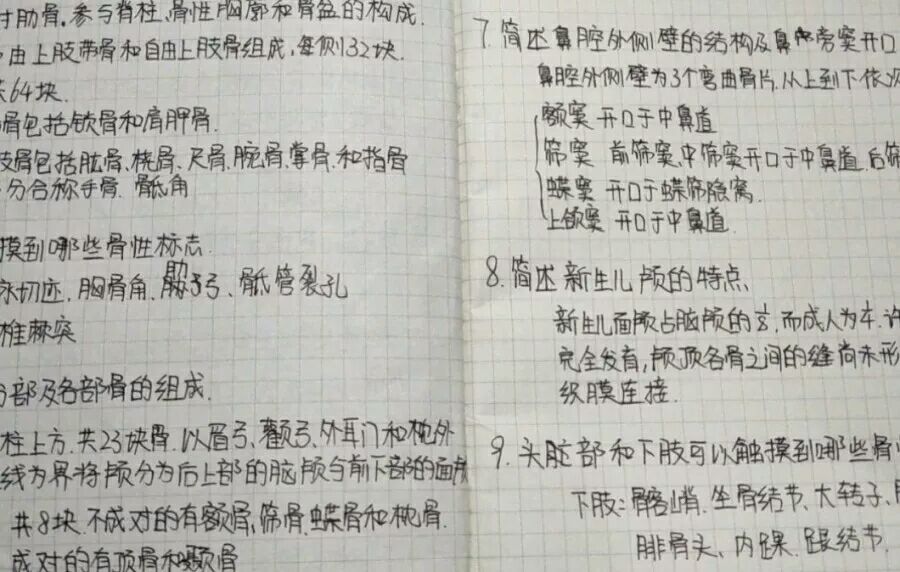 对肋骨.参与脊柱,骨性胸廓和骨盆的构成.
由上肢带骨和自由上肢骨组成,每侧32块.
共64块.
骨包括锁骨和肩胛骨.
肢骨包括肱骨、桡骨、尺骨、腕骨、掌骨、和指骨
分合称手骨. 骶角
摸到哪些骨性标志.
切迹、胸骨角、肋弓、骶管裂孔
椎棘突
分部及各部骨的组成.
柱上方.共23块骨.以眉弓、颧弓、外耳门和枕外
线为界将颅分为后上部的脑颅与前下部的面颅
共8块.不成对的有额骨,筛骨,蝶骨和枕骨.
成对的有顶骨和颞骨
7.简述鼻腔外侧壁的结构及鼻旁窦开口
鼻腔外侧壁为3个弯曲骨片.从上到下依次
额窦 开口于中鼻道
筛窦 前筛窦、中筛窦开口于中鼻道.后筛
蝶窦 开口于蝶筛隐窝.
上颌窦 开口于中鼻道.
8.简述新生儿颅的特点
新生儿面颅占脑颅的⅛,而成人为¼.许
完全发育,颅顶各骨之间的缝尚未形
织膜连接.
9.头脏部和下肢可以触摸到哪些骨
下肢:髂嵴.坐骨结节、大转子、
腓骨头、内踝.跟结节.